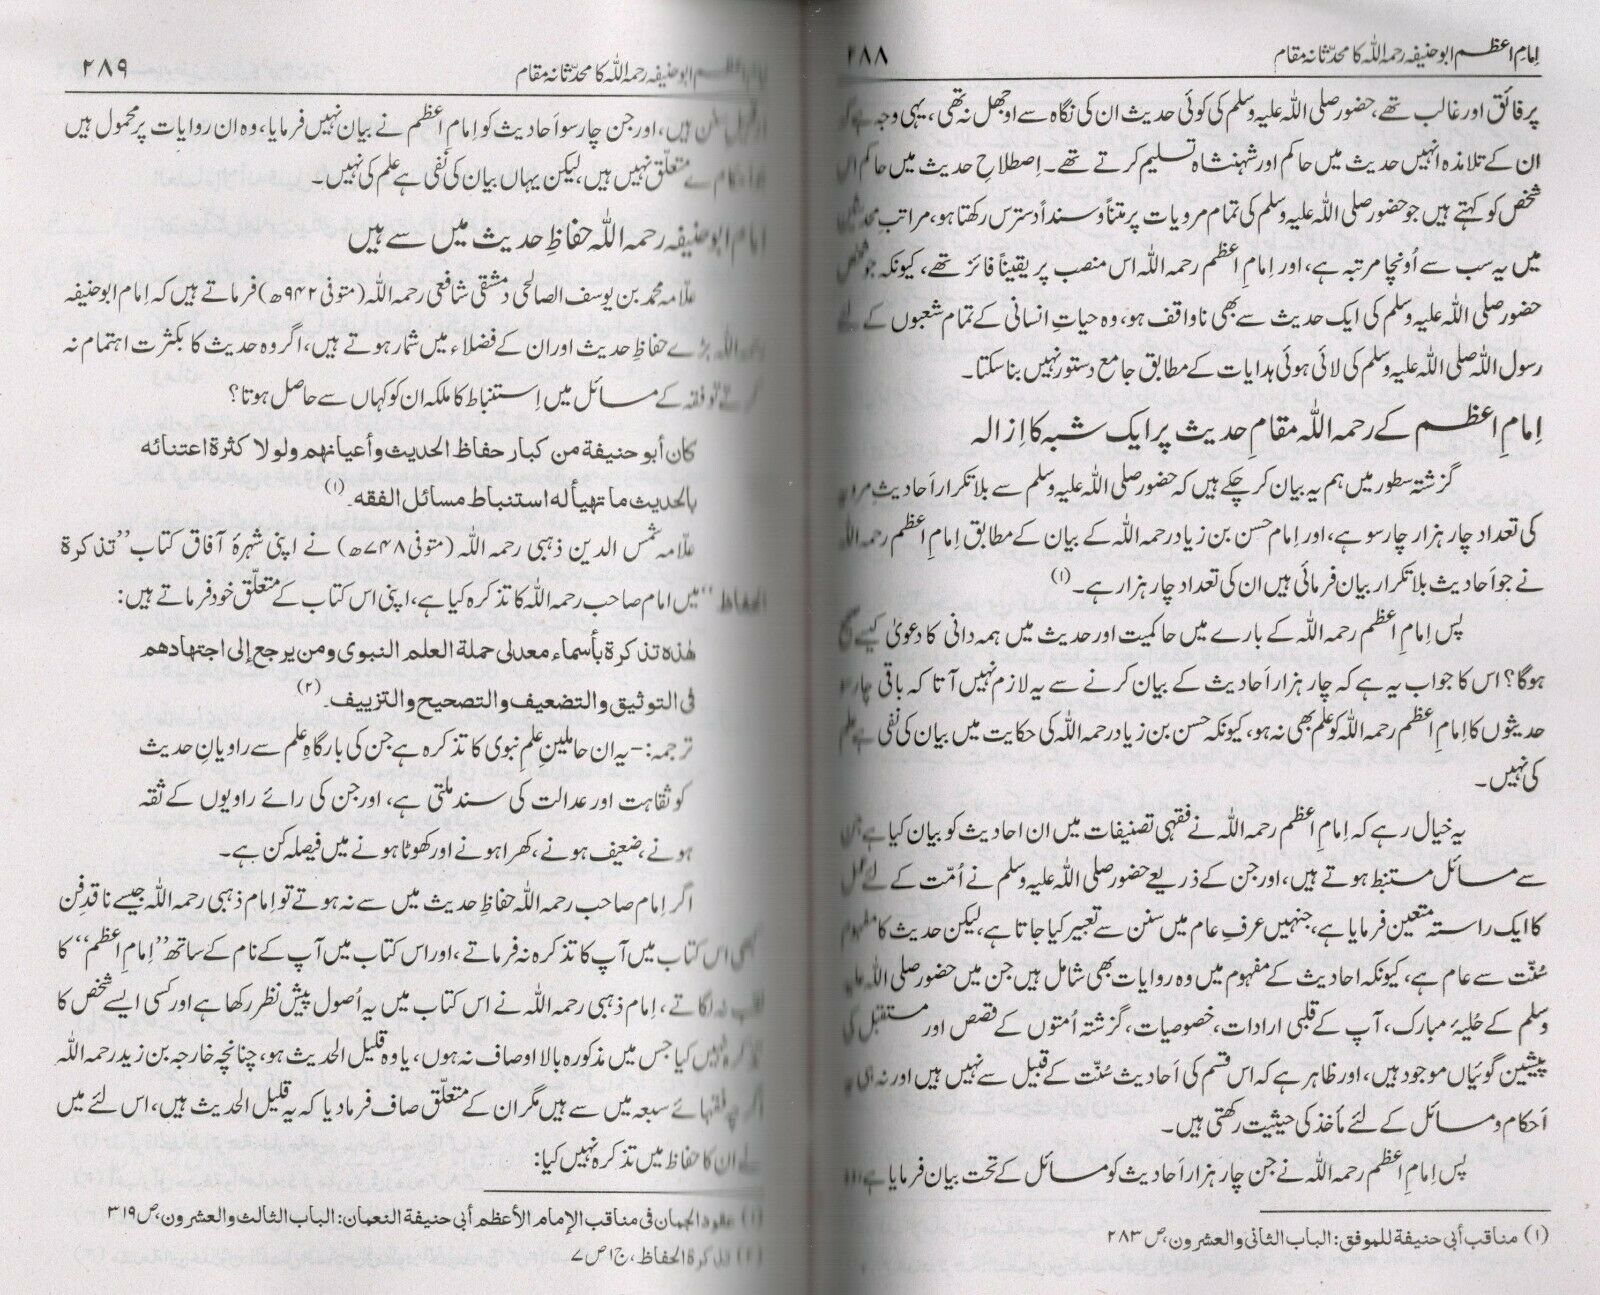 اِمامِ اعظم ابوحنیفہ رحمہ اللہ کا محدّثانہ مقام ۲۸۸
پر فائق اور غالب تھے، حضور صلی اللہ علیہ وسلم کی کوئی حدیث ان کی نگاہ سے اوجھل نہ تھی، یہی وجہ ہے کہ
ان کے تلامذہ انہیں حدیث میں حاکم اور شہنشاہ تسلیم کرتے تھے۔ اِصطلاحِ حدیث میں حاکم اس
شخص کو کہتے ہیں جو حضور صلی اللہ علیہ وسلم کی تمام مرویات پر متناً وسنداً دسترس رکھتا ہو، مراتب محدثین
میں یہ سب سے اُونچا مرتبہ ہے، اور اِمامِ اعظم رحمہ اللہ اس منصب پر یقیناً فائز تھے، کیونکہ جو شخص
حضور صلی اللہ علیہ وسلم کی ایک حدیث سے بھی ناواقف ہو، وہ حیاتِ انسانی کے تمام شعبوں کے لئے
رسول اللہ صلی اللہ علیہ وسلم کی لائی ہوئی ہدایات کے مطابق جامع دستور نہیں بناسکتا۔
اِمامِ اعظم کے رحمہ اللہ مقامِ حدیث پر ایک شبہ کا اِزالہ
گزشتہ سطور میں ہم یہ بیان کرچکے ہیں کہ حضور صلی اللہ علیہ وسلم سے بلاتکرار اَحادیثِ مرویہ
کی تعداد چار ہزار چار سو ہے، اور اِمام حسن بن زیاد رحمہ اللہ کے بیان کے مطابق اِمامِ اعظم رحمہ اللہ
نے جو اَحادیث بلاتکرار بیان فرمائی ہیں ان کی تعداد چار ہزار ہے۔ (۱)
پس اِمامِ اعظم رحمہ اللہ کے بارے میں حاکمیت اور حدیث میں ہمہ دانی کا دعویٰ کیسے صحیح
ہوگا؟ اس کا جواب یہ ہے کہ چار ہزار اَحادیث کے بیان کرنے سے یہ لازم نہیں آتا کہ باقی چار سو
حدیثوں کا اِمامِ اعظم رحمہ اللہ کو علم بھی نہ ہو، کیونکہ حسن بن زیاد رحمہ اللہ کی حکایت میں بیان کی نفی ہے علم
کی نہیں۔
یہ خیال رہے کہ اِمامِ اعظم رحمہ اللہ نے فقہی تصنیفات میں ان احادیث کو بیان کیا ہے جن
سے مسائل مستنبط ہوتے ہیں، اور جن کے ذریعے حضور صلی اللہ علیہ وسلم نے اُمّت کے لئے عمل
کا ایک راستہ متعین فرمایا ہے، جنہیں عرفِ عام میں سنن سے تعبیر کیا جاتا ہے، لیکن حدیث کا مفہوم
سُنّت سے عام ہے، کیونکہ احادیث کے مفہوم میں وہ روایات بھی شامل ہیں جن میں حضور صلی اللہ علیہ
وسلم کے حُلیۂ مبارک، آپ کے قلبی ارادات، خصوصیات، گزشتہ اُمتوں کے قصص اور مستقبل کی
پیشین گوئیاں موجود ہیں، اور ظاہر ہے کہ اس قسم کی اَحادیث سُنّت کے قبیل سے نہیں ہیں اور نہ ہی یہ
اَحکام و مسائل کے لئے مأخذ کی حیثیت رکھتی ہیں۔
پس اِمامِ اعظم رحمہ اللہ نے جن چار ہزار اَحادیث کو مسائل کے تحت بیان فرمایا ہے، وہ
(۱) مناقب أبي حنيفة للموفق: الباب الثاني والعشرون، ص ۲۸۳
ابوحنیفہ رحمہ اللہ کا محدّثانہ مقام ۲۸۹
سنن ہیں، اور جن چار سو اَحادیث کو اِمامِ اعظم نے بیان نہیں فرمایا، وہ ان روایات پر محمول ہیں
متعلّق نہیں ہیں، لیکن یہاں بیان کی نفی ہے علم کی نہیں۔
اِمام ابوحنیفہ رحمہ اللہ حفاظِ حدیث میں سے ہیں
علّامہ محمد بن یوسف الصالحی دمشقی شافعی رحمہ اللہ (متوفی ۹۴۲ھ) فرماتے ہیں کہ اِمام ابوحنیفہ
رحمہ اللہ بڑے حفاظِ حدیث اور ان کے فضلاء میں شمار ہوتے ہیں، اگر وہ حدیث کا بکثرت اہتمام نہ
کرتے تو فقہ کے مسائل میں اِستنباط کا ملکہ ان کو کہاں سے حاصل ہوتا؟
كان أبو حنيفة من كبار حفاظ الحديث وأعيانهم ولولا كثرة اعتنائه
بالحديث ما تهيأ له استنباط مسائل الفقه۔ (۱)
علّامہ شمس الدین ذہبی رحمہ اللہ (متوفی ۷۴۸ھ) نے اپنی شہرۂ آفاق کتاب ”تذکرة
الحفاظ“ میں امام صاحب رحمہ اللہ کا تذکرہ کیا ہے، اپنی اس کتاب کے متعلّق خود فرماتے ہیں:
هٰذه تذكرة بأسماء معدلي حملة العلم النبوي ومن يرجع إلى اجتهادهم
في التوثيق والتضعيف والتصحيح والتزييف۔ (۲)
ترجمہ:- یہ ان حاملینِ علمِ نبوی کا تذکرہ ہے جن کی بارگاہِ علم سے راویانِ حدیث
کو ثقاہت اور عدالت کی سند ملتی ہے، اور جن کی رائے راویوں کے ثقہ
ہونے، ضعیف ہونے، کھرا ہونے اور کھوٹا ہونے میں فیصلہ کن ہے۔
اگر اِمام صاحب رحمہ اللہ حفاظِ حدیث میں سے نہ ہوتے تو اِمام ذہبی رحمہ اللہ جیسے ناقدِ فن
کبھی اس کتاب میں آپ کا تذکرہ نہ فرماتے، اور اس کتاب میں آپ کے نام کے ساتھ ”اِمامِ اعظم“ کا
لقب نہ لگاتے، اِمام ذہبی رحمہ اللہ نے اس کتاب میں یہ اُصول پیشِ نظر رکھا ہے اور کسی ایسے شخص کا
تذکرہ نہیں کیا جس میں مذکورہ بالا اوصاف نہ ہوں، یا وہ قلیل الحدیث ہو، چنانچہ خارجہ بن زید رحمہ اللہ
اگرچہ فقہائے سبعہ میں سے ہیں مگر ان کے متعلّق صاف فرمادیا کہ یہ قلیل الحدیث ہیں، اس لئے میں
نے ان کا حفاظ میں تذکرہ نہیں کیا:
(۱) عقود الجمان في مناقب الإمام الأعظم أبي حنيفة النعمان: الباب الثالث والعشرون، ص ۳۱۹
(۲) تذكرة الحفاظ، ج۱ ص ۷